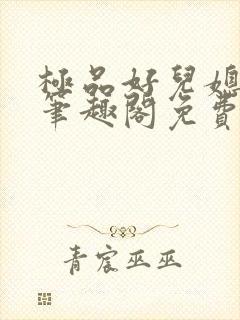 極品好兒媳
筆趣閣免費
青宸巫巫